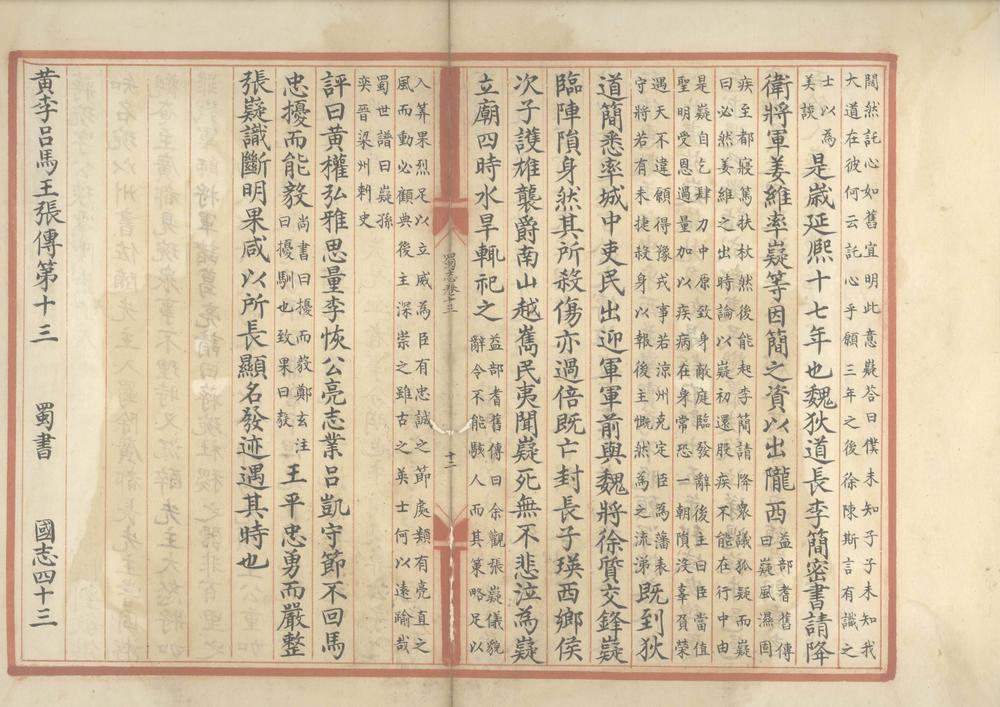 闊然託心如舊宜明此意嶷答曰僕未知子子未知我
大道在彼何云託心乎願三年之後徐陳斯言有識之
士以為
美談
是歲延熈十七年也魏狄道長李簡密書請降
衛將軍姜維率嶷等因簡之資以出隴西
益部耆舊傳
曰嶷風濕固
疾至都寢篤扶杖然後能起李簡請降衆議狐疑而嶷
曰必然姜維之出時論以嶷初還股疾不能在行中由
是嶷自乞肆力中原致身敵庭臨發辭後主曰臣當值
聖明受恩過量加以疾病在身常恐一朝隕没辜負榮
遇天不違願得豫戎事若涼州克定臣為藩表
守將若有未捷殺身以報後主慨然為之流涕
既到狄
道簡悉率城中吏民出迎軍軍前與魏將徐質交鋒嶷
臨陣隕身然其所殺傷亦過倍既亡封長子瑛西鄉侯
次子護雄襲爵南山越嶲民夷聞嶷死無不悲泣為嶷
立廟四時水旱輒祀之
益部耆舊傳曰余觀張嶷儀貌
辭令不能駭人而其策略足以
蜀志卷十三
十二
入筭果烈足以立威為臣有忠誠之節處類有亮直之
風而動必顧典後主深崇之雖古之英士何以遠踰哉
蜀世譜曰嶷孫
奕晉梁州刺史
評曰黄權弘雅思量李恢公亮志業吕凱守節不回馬
忠擾而能毅
尚書曰擾而毅鄭玄注
曰擾馴也致果曰毅
王平忠勇而嚴整
張嶷識斷明果咸以所長顯名發迹遇其時也
黄李吕馬王張傳第十三 蜀書 國志四十三